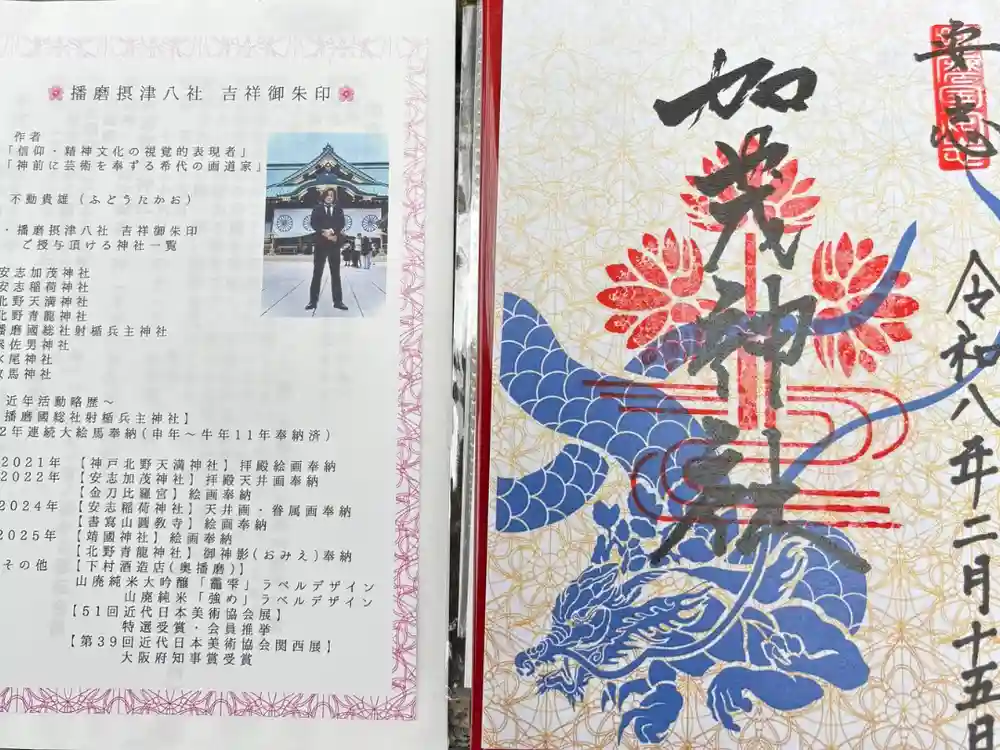 播磨摂津八社 吉祥御朱印
作者
「信仰・精神文化の視覚的表現者」
「神前に芸術を奉ずる希代の画道家」
不動貴雄（ふどうたかお）
・播磨摂津八社 吉祥御朱印
ご授与頂ける神社一覧
安志加茂神社
安志稲荷神社
北野天満神社
北野青龍神社
播磨國総社射楯兵主神社
佐男神社
水尾神社
馬神社
近年活動略歴～
播磨國総社射楯兵主神社】
2年連続大絵馬奉納(申年～牛年11年奉納済)
2021年 【神戸北野天満神社】拝殿絵画奉納
2022年 【安志加茂神社】拝殿天井画奉納
【金刀比羅宮】絵画奉納
2024年 【安志稲荷神社】天井画・眷属画奉納
【書寫山圓教寺】絵画奉納
2025年 【靖國神社】絵画奉納
【北野青龍神社】御神影(おみえ)奉納
その他 【下村酒造店(奥播磨)】
山廃純米大吟醸「龗雫」ラベルデザイン
山廃純米「強め」ラベルデザイン
【51回近代日本美術協会展】
特選受賞・会員推挙
【第39回近代日本美術協会関西展】
大阪府知事賞受賞
安志
加茂神社
令和八年二月十五日